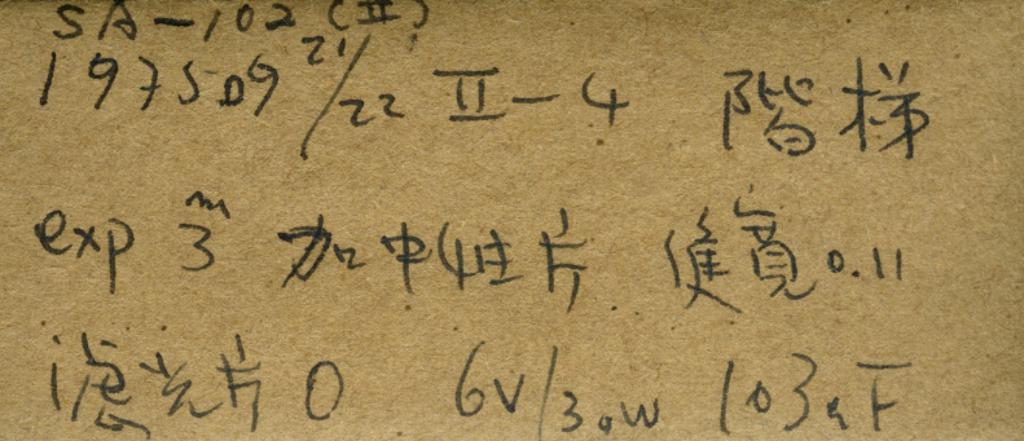 SA-102 (II)
197509 21/22 II-4 階梯
exp 3m 加中性片 縫寬 0.11
滤光片 0 6V/30W 103aF